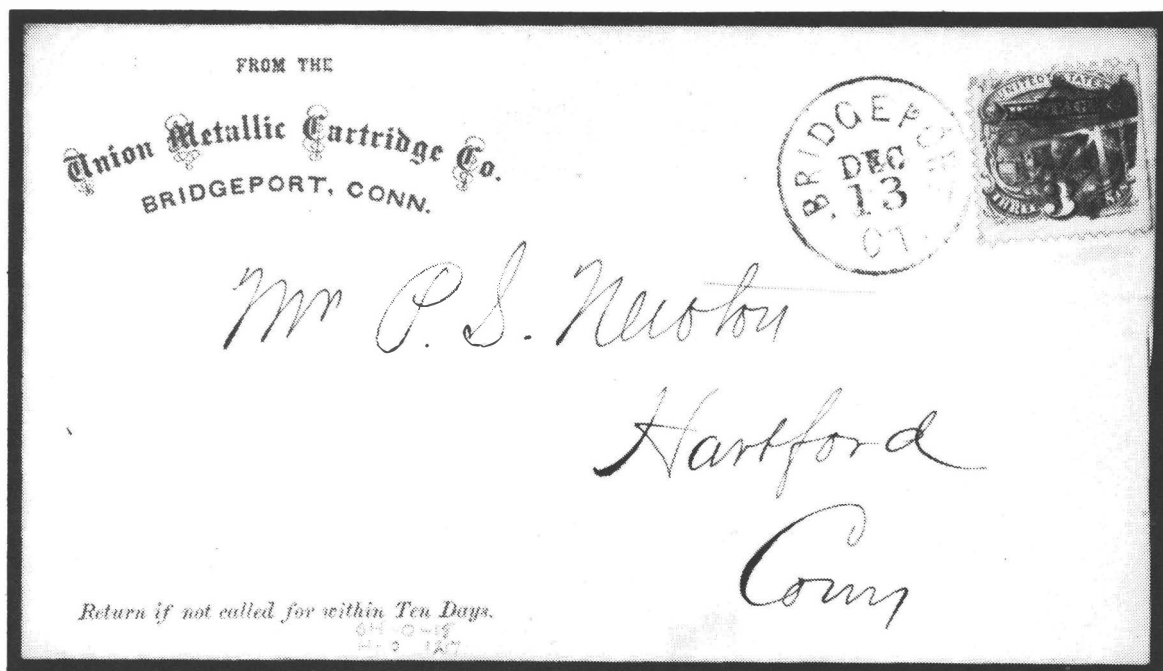 FROM THE
Union Metallic Cartridge Co.
BRIDGEPORT, CONN.
BRIDGEPOR
DEC
13
CT.
UNITED STATES
THREE
3
Mr P. S. Newton
Hartford
Conn
Return if not called for within Ten Days.